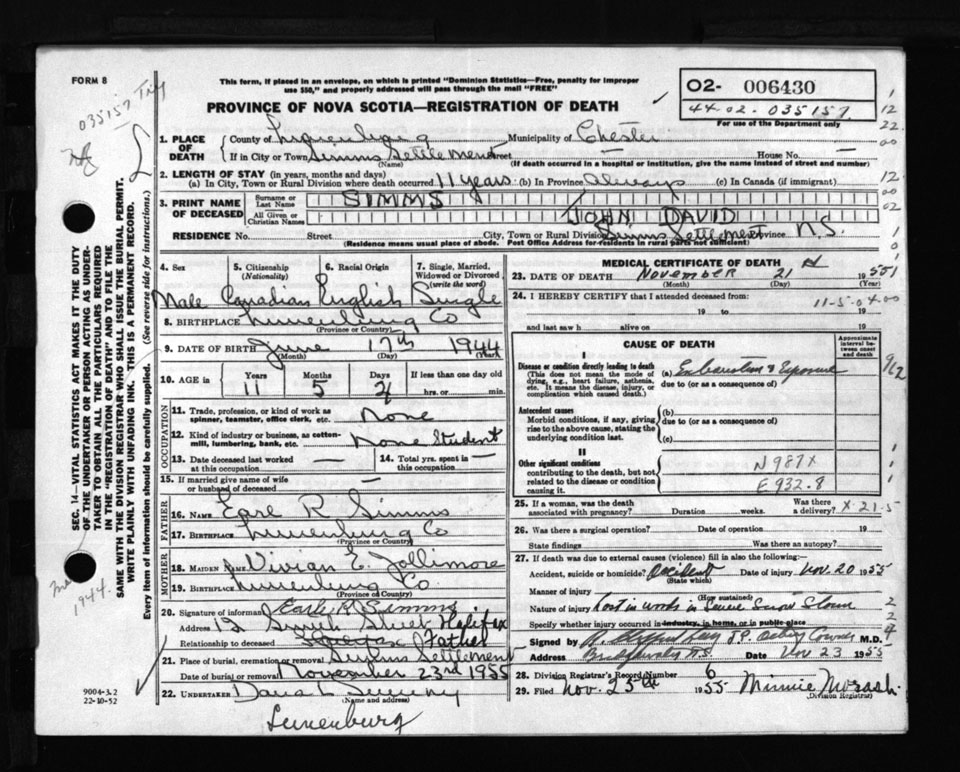 FORM 8
This form, if placed in an envelope, on which is printed "Dominion Statistics—Free, penalty for improper
use $50," and properly addressed will pass through the mail "FREE"
PROVINCE OF NOVA SCOTIA—REGISTRATION OF DEATH
O2- 006430
44-02. 035157
For use of the Department only
035157
1. PLACE OF DEATH
County of Lunenburg Municipality of Chester
If in City or Town Simms Settlement Street House No. —
(Name) (If death occurred in a hospital or institution, give the name instead of street and number)
2. LENGTH OF STAY (in years, months and days)
(a) In City, Town or Rural Division where death occurred 11 years (b) In Province Always (c) In Canada (if immigrant)
3. PRINT NAME OF DECEASED
Surname or Last Name SIMMS
All Given or Christian Names JOHN DAVID
RESIDENCE No. Street City, Town or Rural Division Simms Settlement Province N.S.
(Residence means usual place of abode. Post Office Address for residents in rural parts not sufficient)
4. Sex Male
5. Citizenship (Nationality) Canadian
6. Racial Origin English
7. Single, Married, Widowed or Divorced (write the word) Single
8. BIRTHPLACE Lunenburg Co
(Province or Country)
9. DATE OF BIRTH June 17th 1944
(Month) (Day) (Year)
10. AGE in Years Months Days If less than one day old
11 5 hrs. or min.
OCCUPATION
11. Trade, profession, or kind of work as spinner, teamster, office clerk, etc. None
12. Kind of industry or business, as cotton-mill, lumbering, bank, etc. None Student
13. Date deceased last worked at this occupation —
14. Total yrs. spent in this occupation —
15. If married give name of wife or husband of deceased —
FATHER
16. NAME Earle R Simms
17. BIRTHPLACE Lunenburg Co
(Province or Country)
MOTHER
18. MAIDEN NAME Vivian E. Jollimore
19. BIRTHPLACE Lunenburg Co.
(Province or Country)
20. Signature of informant Earle R. Simms
Address 12 Street Halifax
Relationship to deceased Father
21. Place of burial, cremation or removal Simms Settlement
Date of burial or removal November 23rd 1955
22. UNDERTAKER Dana L Sweeny
(Name and address)
Lunenburg
MEDICAL CERTIFICATE OF DEATH
23. DATE OF DEATH November 21 1955
(Month) (Day) (Year)
24. I HEREBY CERTIFY that I attended deceased from:
11-5-04-00
19 to 19
and last saw h alive on 19
CAUSE OF DEATH
Approximate interval between onset and death
I
Disease or condition directly leading to death
(This does not mean the mode of dying, e.g., heart failure, asthenia, etc. It means the disease, injury, or complication which caused death.)
(a) Exhaustion & Exposure
due to (or as a consequence of)
Antecedent causes
Morbid conditions, if any, giving rise to the above cause, stating the underlying condition last.
(b)
due to (or as a consequence of)
(c)
II
Other significant conditions
contributing to the death, but not related to the disease or condition causing it.
N987X
E932.8
25. If a woman, was the death associated with pregnancy? Duration weeks. Was there a delivery? X-21-5
26. Was there a surgical operation? Date of operation 19
State findings Was there an autopsy?
27. If death was due to external causes (violence) fill in also the following:—
Accident, suicide or homicide? Accident Date of injury Nov. 20 1955
(State which)
Manner of injury
(How sustained)
Nature of injury Lost in woods in Severe Snow Storm
Specify whether injury occurred in industry, in home, or in public place
Signed by J.P. Acting Coroner M.D.
Address Bridgewater N.S. Date Nov 23 1955
28. Division Registrar's Record Number 6
29. Filed Nov. 25th 1955 Minnie Morash
Division Registrar
SEC. 14—VITAL STATISTICS ACT MAKES IT THE DUTY
OF THE UNDERTAKER OR PERSON ACTING AS UNDER-
TAKER TO OBTAIN ALL THE PARTICULARS REQUIRED
IN THE "REGISTRATION OF DEATH" AND TO FILE THE
SAME WITH THE DIVISION REGISTRAR WHO SHALL ISSUE THE BURIAL PERMIT.
WRITE PLAINLY WITH UNFADING INK. THIS IS A PERMANENT RECORD.
Every item of information should be carefully supplied. (See reverse side for instructions.)
1944.
9004-3.2
22-10-52